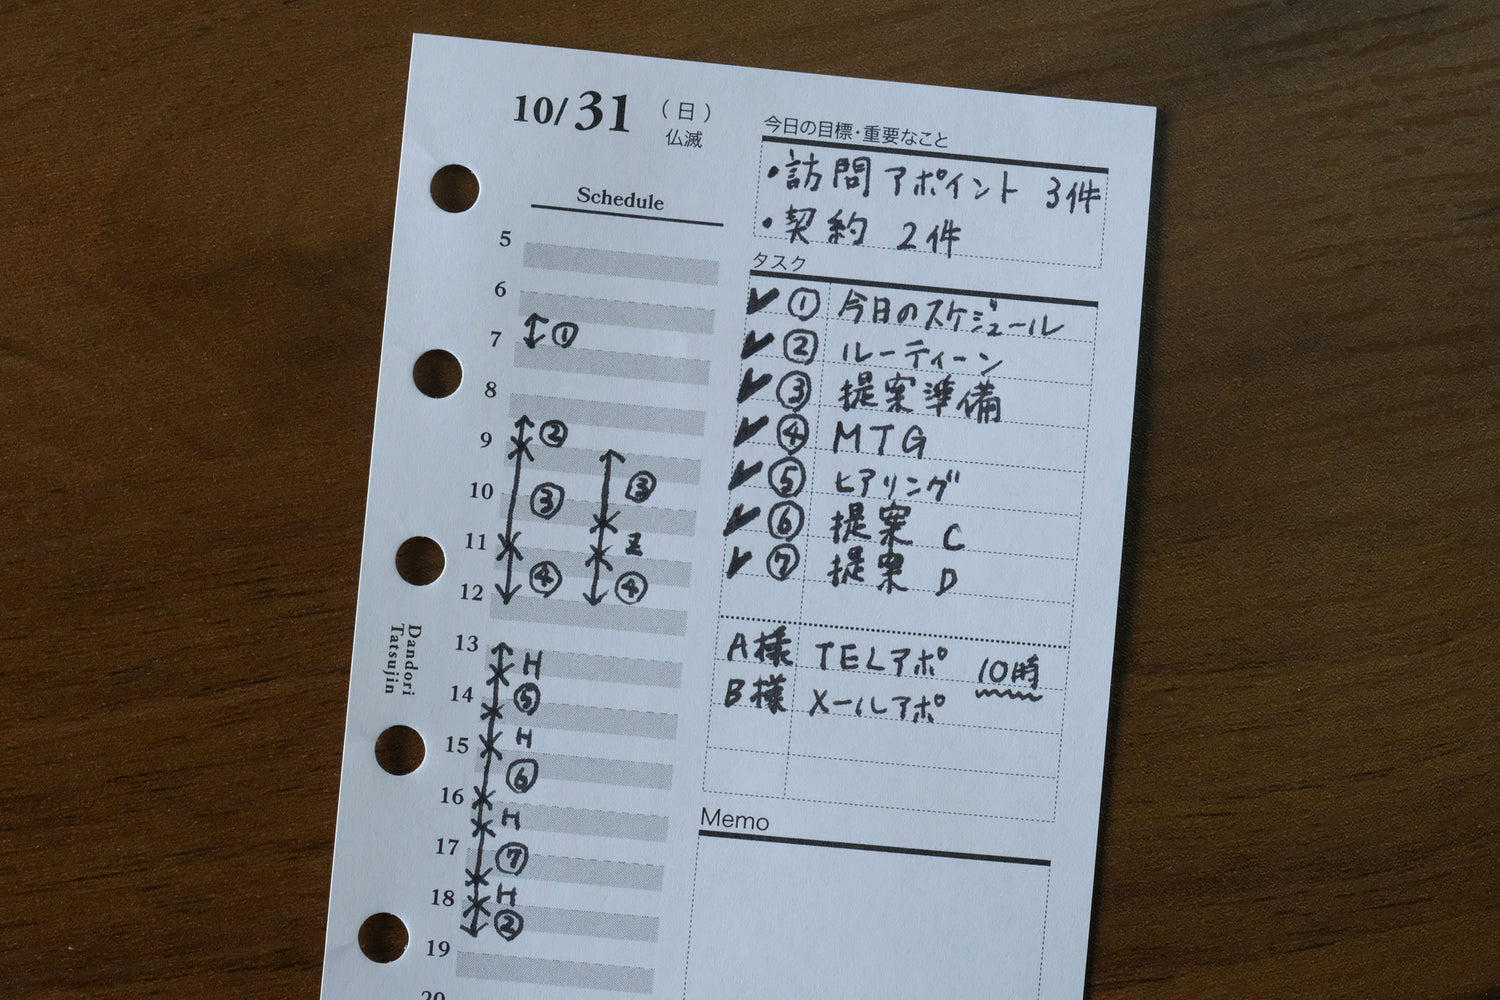 10/31 (日)
仏滅
Schedule
5
6
7 ①
8
9 ②
10 ③ ③
11
12 ④ ④
13 H
14 ⑤
15 H
⑥
16 H
17 ⑦
18 H
②
19
20
Dandori
Tatsujin
今日の目標・重要なこと
・訪問アポイント 3件
・契約 2件
タスク
✓ ① 今日のスケジュール
✓ ② ルーティーン
✓ ③ 提案準備
✓ ④ MTG
✓ ⑤ ヒアリング
✓ ⑥ 提案 C
✓ ⑦ 提案 D
A様 TELアポ 10時
B様 メールアポ
Memo